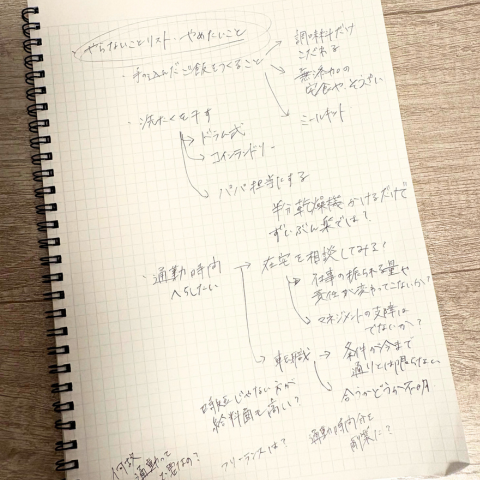 やらないことリスト・やめたいこと
・手の込んだご飯をつくること
調味料だけ
こだわる
無添加の
宅食や、そうざい
ミールキット
・洗たくを干す
ドラム式
コインランドリー
パパ担当にする
半分乾燥機かけるだけで
ずいぶん楽では?
・通勤時間
へらしたい
在宅を相談してみる!
仕事の振られる量や
責任が変わってこないか?
マネジメントの支障は
でないか?
転職
条件が今まで
通りとは限らない
合うかどうか不明
時短じゃない方が
給料面も高い?
通勤時間分を
副業に?
フリーランスは?
何故
通勤って
必要なの?